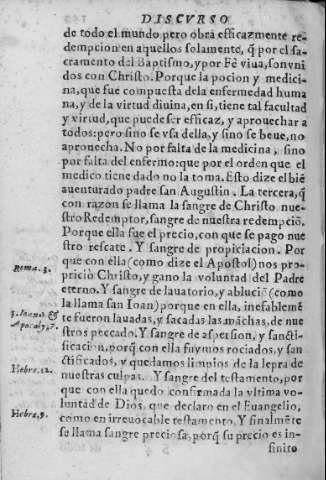 DISCVRSO
de todo el mundo pero obra efficazmente re-
dempcion en aquellos solamente, q̃ por el sa-
cramento del Baptismo, y por Fè viua, son vni
dos con Christo. Porque la pocion y medici-
na, que fue compuesta dela enfermedad huma
na, y de la virtud diuina, en si, tiene tal facultad
y virtud, que puede ser efficaz, y aprouechar a
todos: pero sino se vsa della, y sino se beue, no
aprouecha. No por falta de la medicina, sino
por falta del enfermo: que por el orden que el
medico tiene dado no la toma. Esto dize el biẽ
auenturado padre san Augustin. La tercera, q̃
con razon se llama la sangre de Christo nue-
stro Redemptor, sangre de nuestra redempciõ.
Porque ella fue el precio, con que se pago nue
stro rescate. Y sangre de propiciacion. Por
que con ella (como dize el Apostol) nos pro-
Roma. 3.
piciò Christo, y gano la voluntad del Padre
eterno. Y sangre de lauatorio, y abluciõ (como
la llama san Ioan) porque en ella, inefablemẽ
te fueron lauadas, y sacadas las mãchas, de nue
Apocal, 7.
stros peccado. Y sangre de aspersion, y sancti-
ficacion, porq̃ con ella fuymos rociados, y san
ctificados, y quedamos limpios de la lepra de
Hebre, 12.
nuestras culpas. Y sangre del testamento, por
que con ella quedo confirmada la vltima vo-
luntad de Dios, que declaro en el Euangelio,
Hebre, 9.
como en irreuocable testamento. Y finalmẽte
se llama sangre preciosa, porq̃ su precio es in-
finito